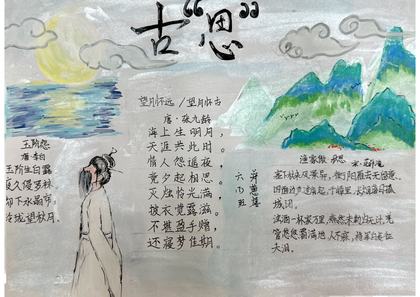 古“思”
玉阶怨
唐·李白
玉阶生白露
夜久侵罗袜
却下水晶帘
玲珑望秋月
望月怀远/望月怀古
唐·张九龄
海上生明月,
天涯共此时。
情人怨遥夜,
竟夕起相思。
灭烛怜光满,
披衣觉露滋。
不堪盈手赠,
还寝梦佳期。
六
班
渔家傲 秋思
宋·范仲淹
塞下秋来风景异,衡阳雁去无留意。
四面边声连角起,千嶂里,长烟落日孤
城闭。
浊酒一杯家万里,燕然未勒归无计,羌
管悠悠霜满地,人不寐,将军白发征
夫泪。